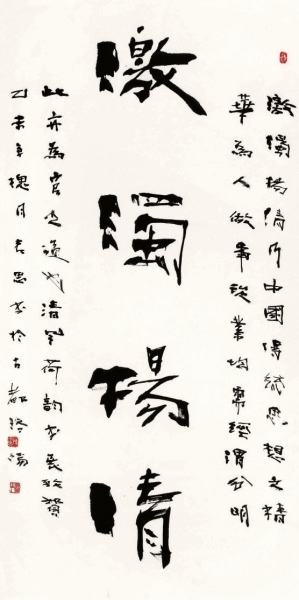 激濁揚清乃中國傳統思想之精
華為人做事從業均需經渭分明
激濁揚清
此亦為官之道也清風荷韵書展致賀
乙未年槐月書於古都